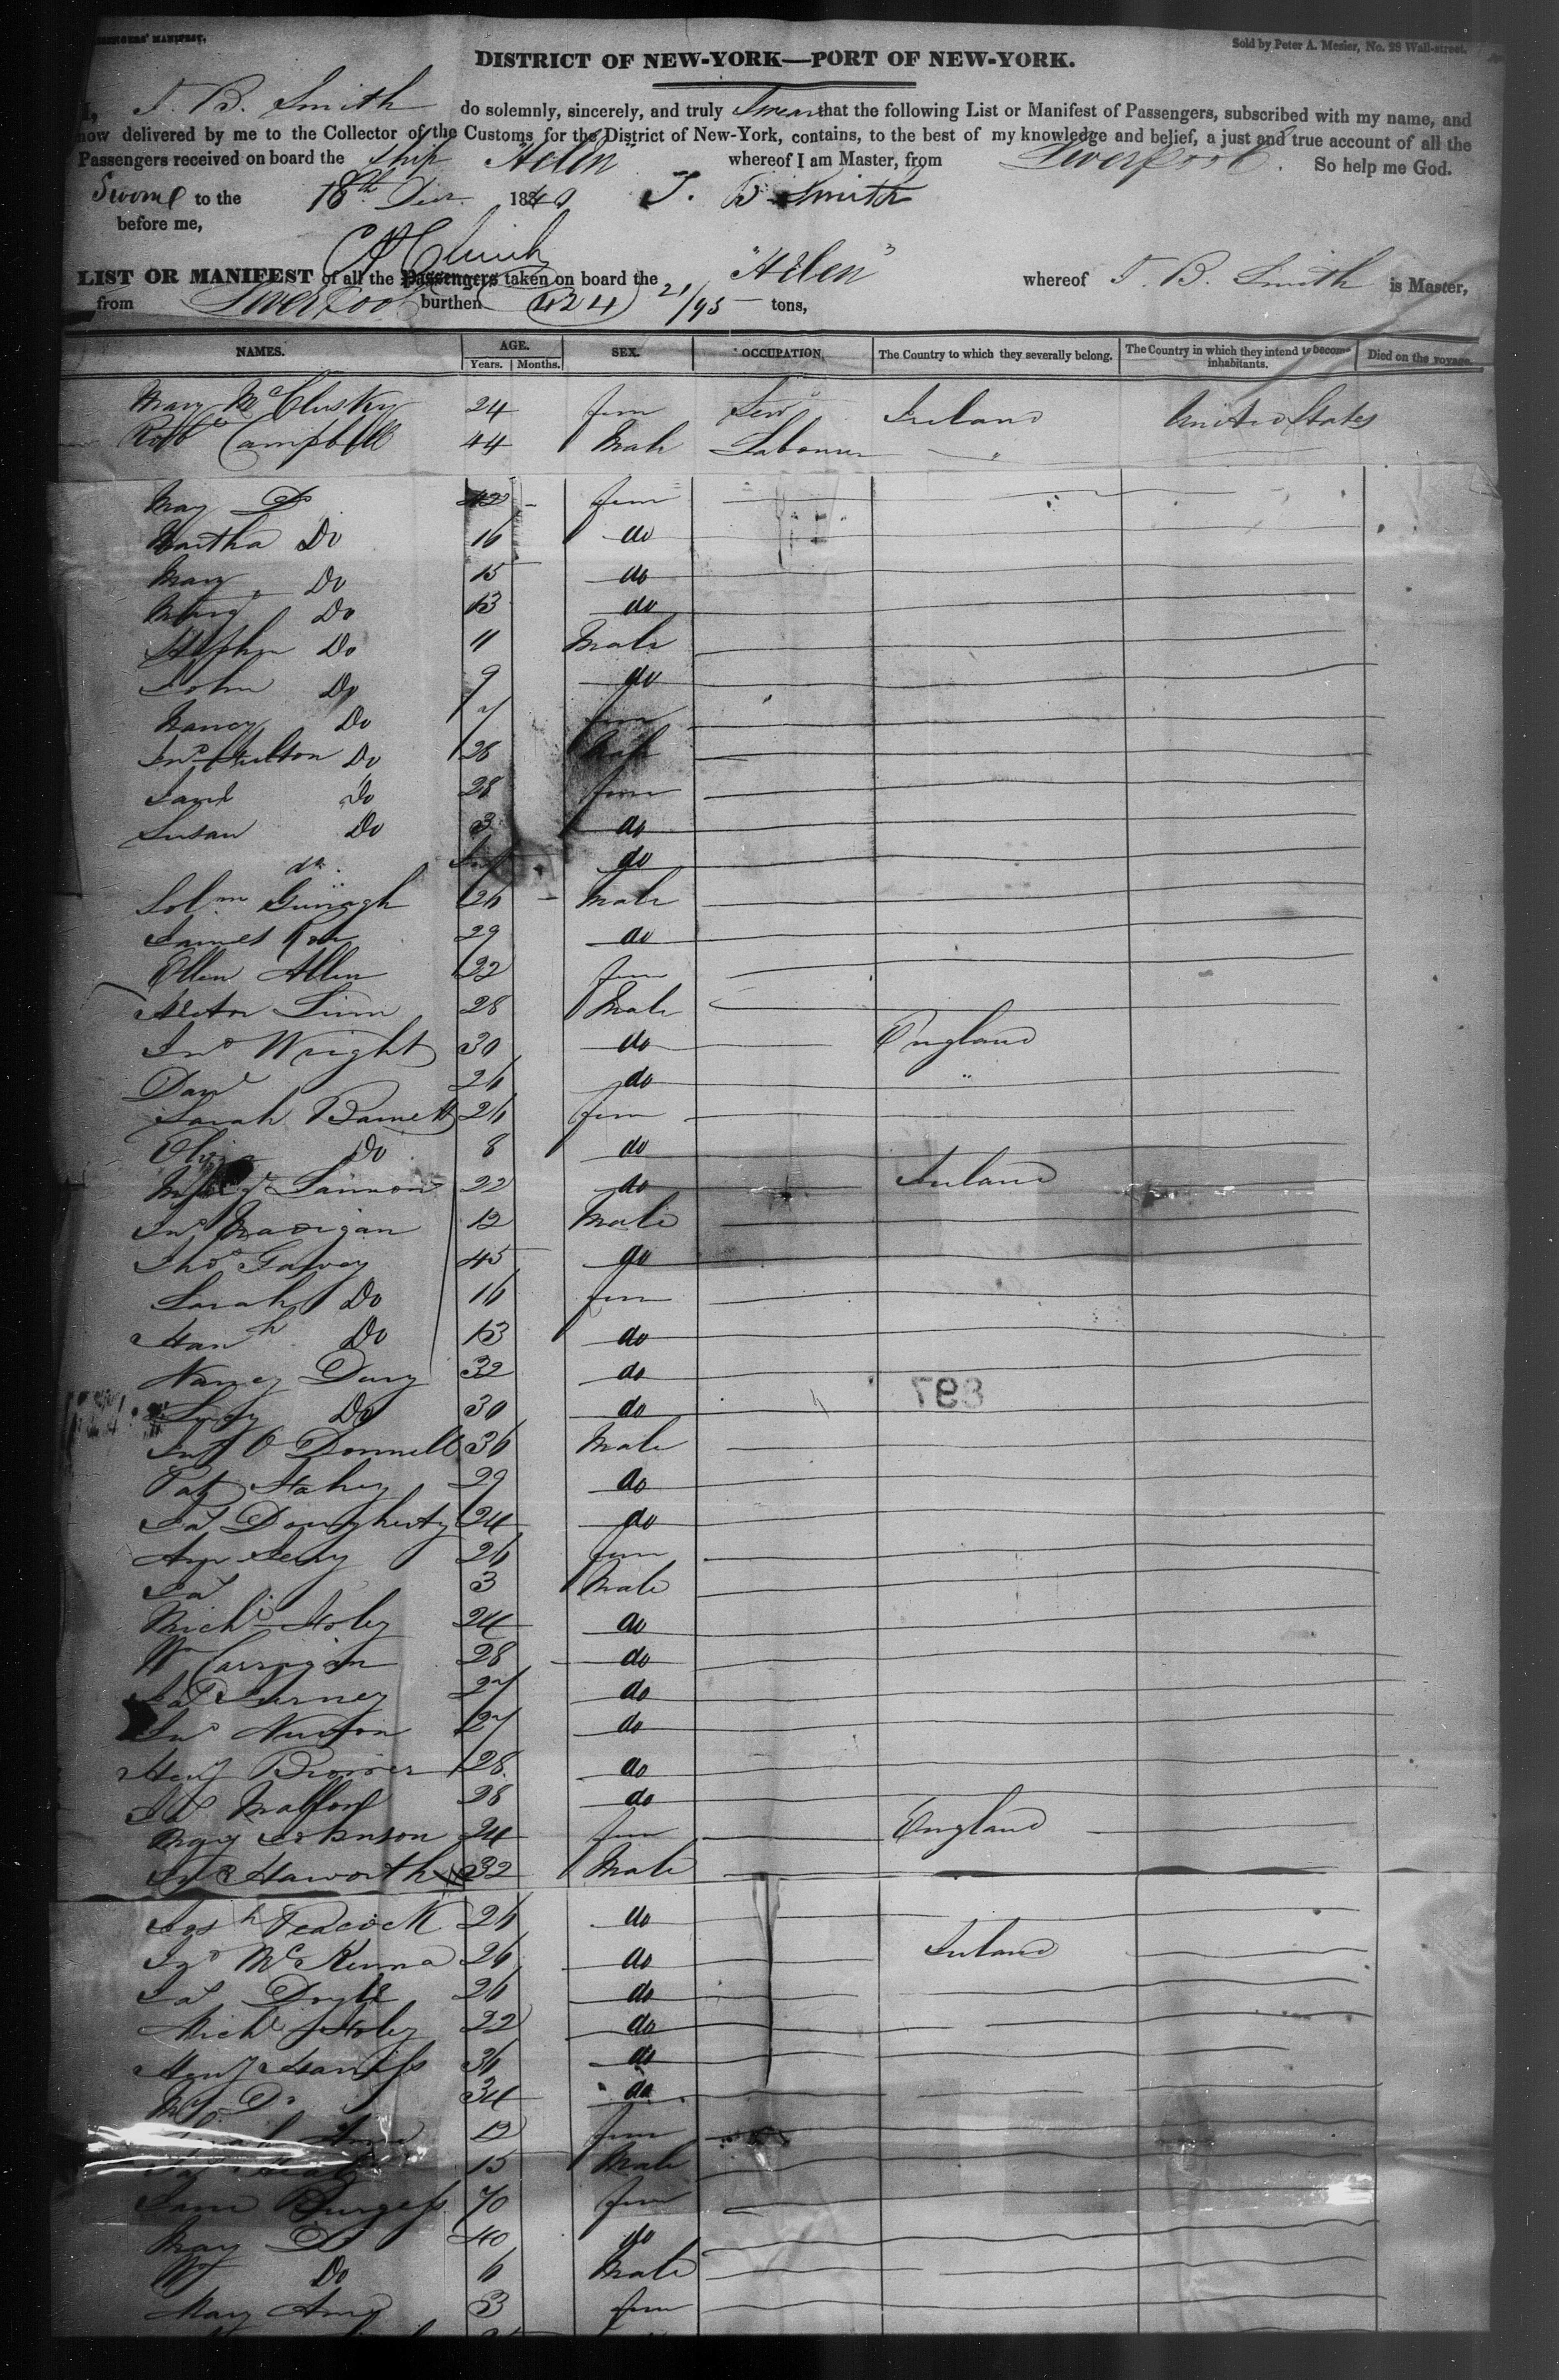 PASSENGERS' MANIFEST.
Sold by Peter A. Mesier, No. 28 Wall-street.
DISTRICT OF NEW-YORK—PORT OF NEW-YORK.
I, T. B. Smith do solemnly, sincerely, and truly Swear that the following List or Manifest of Passengers, subscribed with my name, and
now delivered by me to the Collector of the Customs for the District of New-York, contains, to the best of my knowledge and belief, a just and true account of all the
Passengers received on board the Ship "Helen" whereof I am Master, from Liverpool. So help me God.
Sworn to the 18th Decr 1840 T. B Smith
before me,
LIST OR MANIFEST of all the Passengers taken on board the "Helen" whereof T. B. Smith is Master,
from Liverpool burthen 424 21/95 tons,
NAMES. AGE. SEX. OCCUPATION, The Country to which they severally belong. The Country in which they intend to become inhabitants. Died on the voyage.
Years. Months.
Mary McClusky 24 fem Ireland United States
Robt Campbell 44 Male Labourer "
May Do 42 fem
Martha Do 16 do
Mary Do 15 do
Do 13 do
Stephen Do 11 Male
John Do 9 do
Nancy Do 7 fem
Jno Fulton Do 28 Male
Do 28 fem
Susan Do 3 do
Inf do
Solmn 26 Male
James 29 do
Ellen Allen 22 fem
Hector Linn 28 Male
Jno Wright 30 do England
Danl 26 do "
Sarah Barnett 26 fem
Do 8 do
Lannon 22 do Ireland
Jno Madigan 12 Male
Thos Garvey 45 do
Sarah Do 16 fem
Hanh Do 13 do
Nancy Dary 32 do
Do 30 do
O Donnell 36 Male
Pat Fahey 29 do
Jas Dougherty 24 do
Ann 26 fem
Jas 3 Male
Michl Foley 24 do
Wm Carrigan 28 do
27 do
Jno Newton 27 do
Heny Brower 28 do
28 do
Mary Johnson 24 fem England
Jno Haworth 32 Male
Josh Peacock 26 do
Jno McKenna 26 do Ireland
Jas Doyle 26 do
Michl Foley 22 do
Heny 36 do
Do 34 do
12 fem
15 Male
Jane Burgess 70 fem
May Do 40 do
Wm Do 6 Male
Mary Ann 3 fem